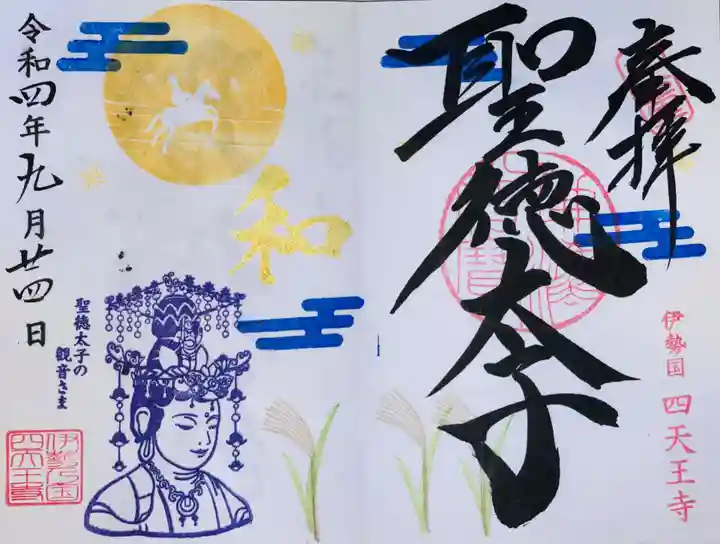 奉拝
聖徳太子
伊勢国 四天王寺
和
聖徳太子の
観音さま
令和四年九月廿四日
伊勢之国
四天王寺